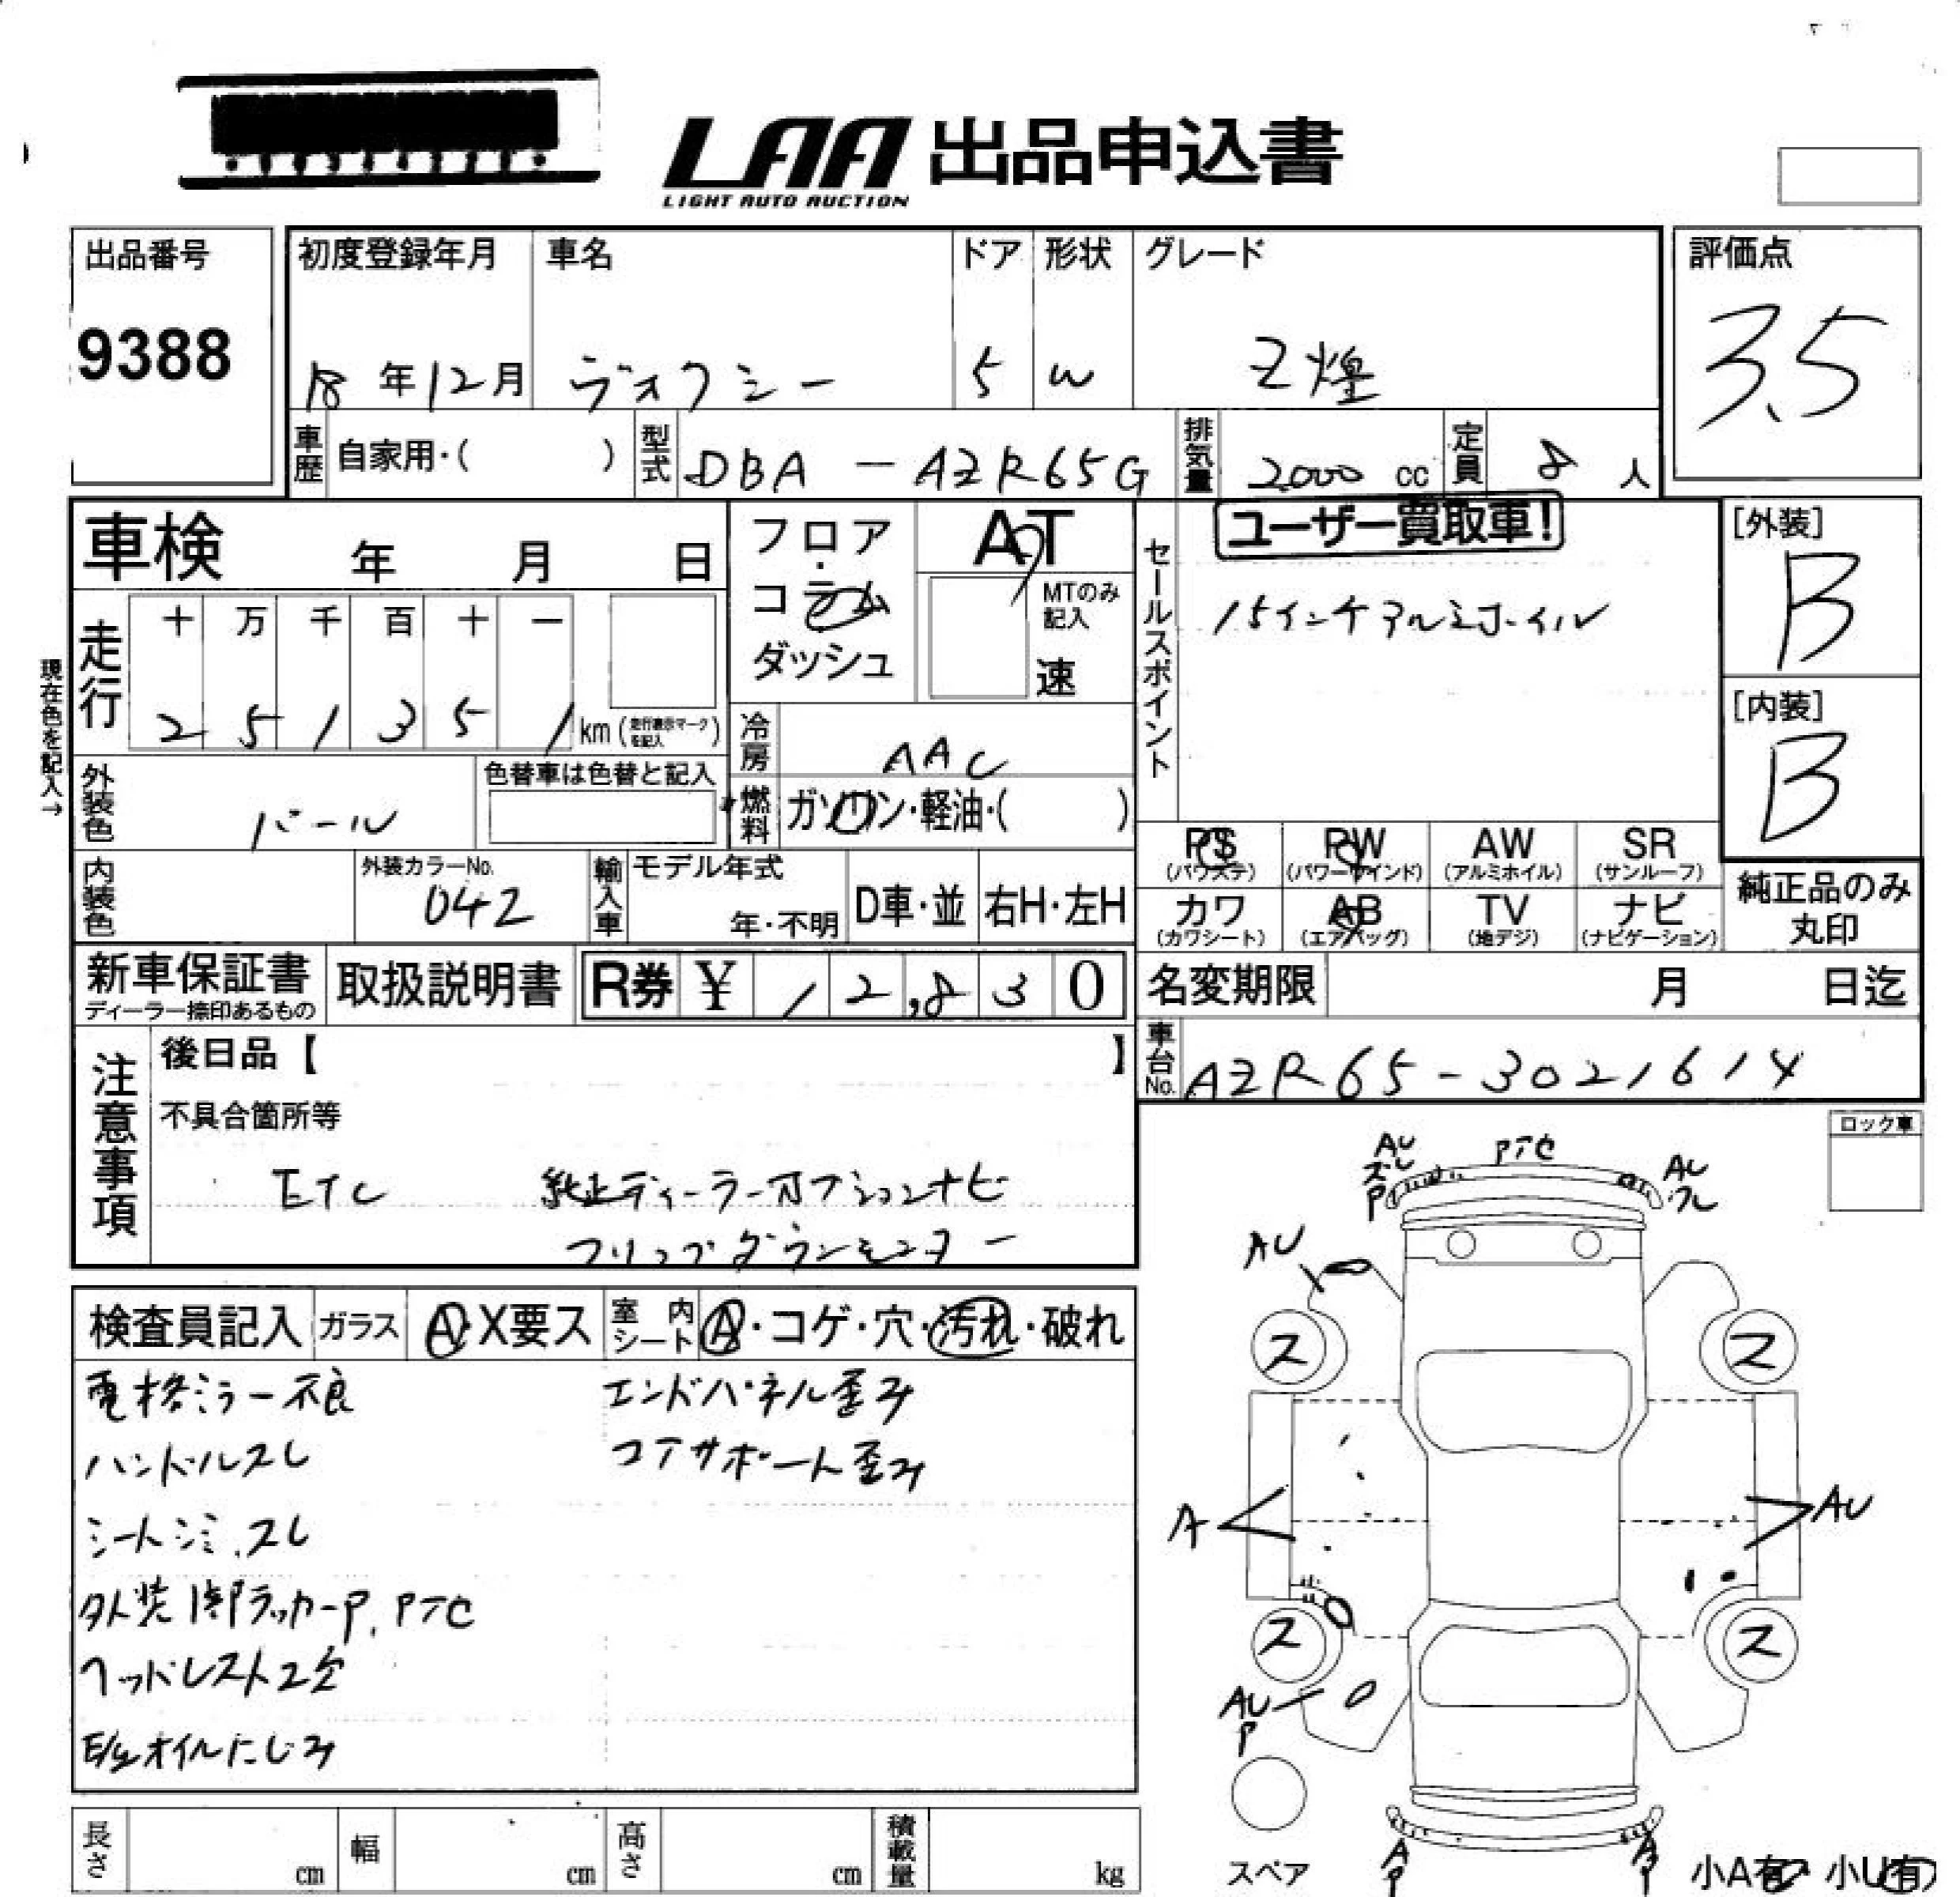 LAA 出品申込書
LIGHT AUTO AUCTION
出品番号
9388
初度登録年月 車名 ドア 形状 グレード
18年12月 ヴォクシー 5 W Z煌
評価点
3.5
車歴 自家用・( ) 型式 DBA-AZR65G 排気量 2000 cc 定員 8 人
車検 年 月 日
フロア・コラム
ダッシュ
AT
MTのみ
記入
速
セールスポイント
ユーザー買取車!
15インチアルミホイル
[外装]
B
[内装]
B
現在色を記入→
走行 十 万 千 百 十 一
2 5 1 3 5 1 km (走行表示マークを記入)
冷房 AAC
外装色 パール 色替車は色替と記入
燃料 ガソリン・軽油・( )
PS (パワステ) PW (パワーウインド) AW (アルミホイル) SR (サンルーフ)
カワ (カワシート) AB (エアバッグ) TV (地デジ) ナビ (ナビゲーション)
純正品のみ
丸印
内装色 外装カラーNo. 042
輸入車 モデル年式 年・不明 D車・並 右H・左H
新車保証書
ディーラー捺印あるもの
取扱説明書 R券 ¥ 12,830
名変期限 月 日迄
車台No. AZR65-3021614
注意事項
後日品【 】
不具合箇所等
ETC 純正ディーラーオプションナビ
フリップダウンモニター
ロック車
検査員記入 ガラス A・X要ス 室内シート A・コゲ・穴・汚れ・破れ
電格ミラー不良 エンドパネル歪み
ハンドルスレ コアサポート歪み
シートシミ、スレ
外装1部ラッカーP、PTC
ヘッドレスト2欠
E/gオイルにじみ
AU
P
PTC
AU
AU
ス ス
A AU
ス ス
AU
P
スペア
AP AP
小A有 小U有
長さ cm 幅 cm 高さ cm 積載量 kg